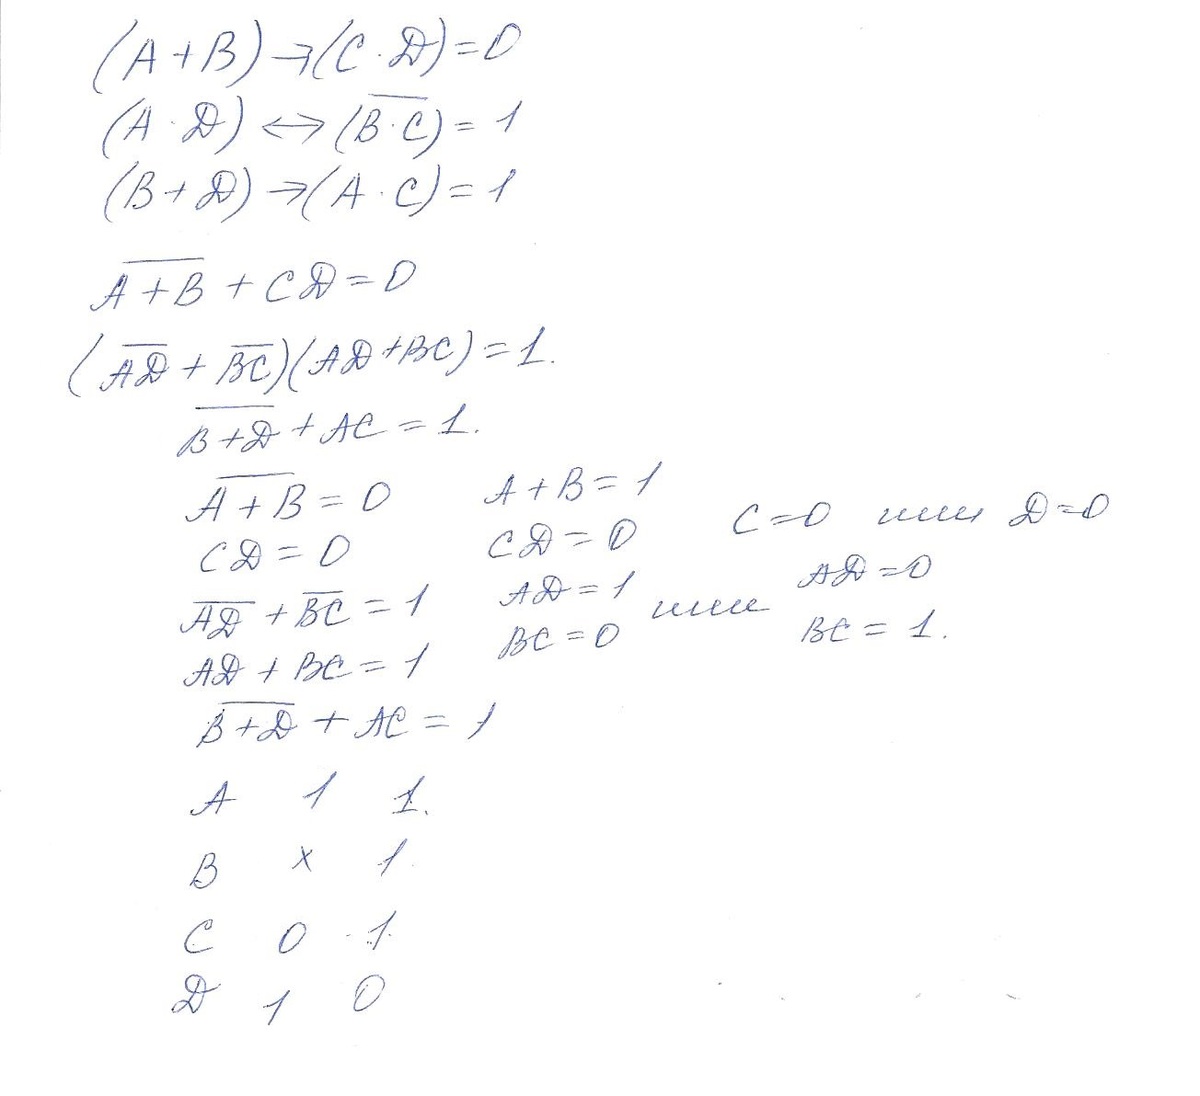 (A+B)→(C·D)=0
(A·D)↔(\overline{B·C})=1
(B+D)→(A·C)=1
\overline{A+B}+CD=0
(\overline{AD}+\overline{BC})(AD+BC)=1.
\overline{B+D}+AC=1.
\overline{A+B}=0 A+B=1
CD=0 CD=0 C=0 или D=0
\overline{AD}+\overline{BC}=1 AD=1 или AD=0
AD+BC=1 BC=0 BC=1.
\overline{B+D}+AC=1
A 1 1.
B x 1
C 0 1
D 1 0